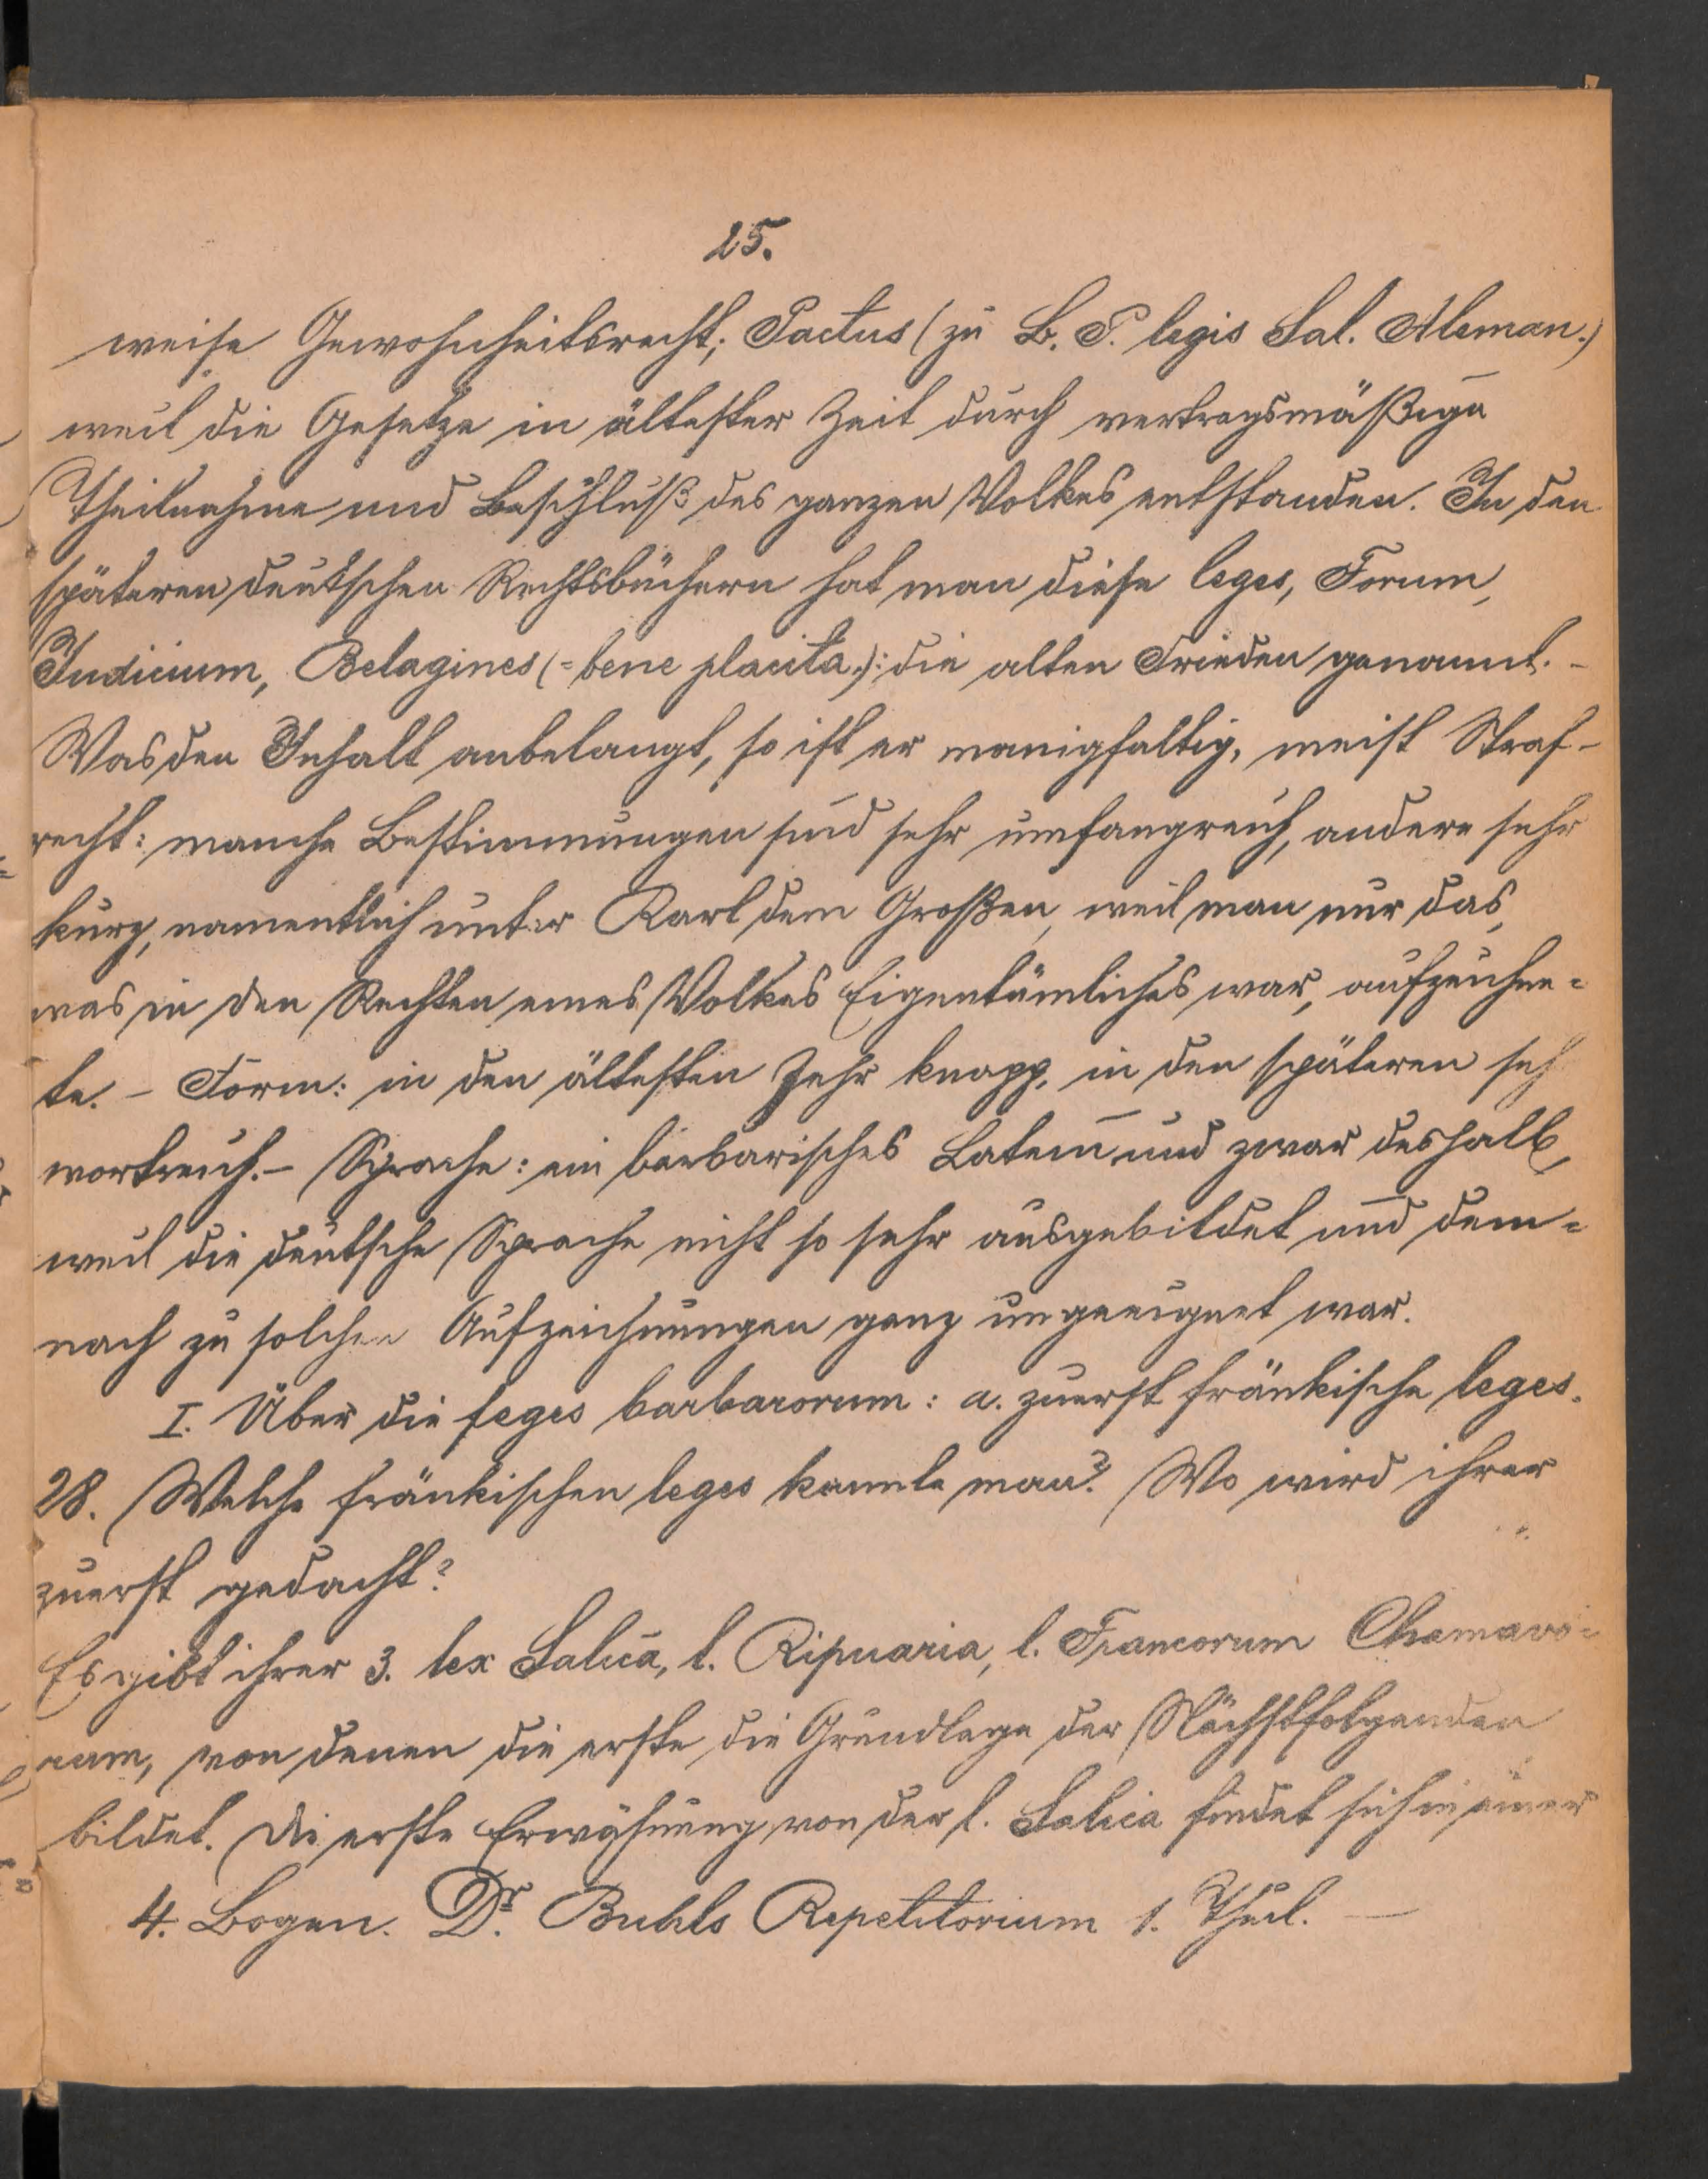 25.
weise Gewohnheitsrecht; Pactus (zu B. P. legis Sal. Aleman.)
weil die Gesetze in ältester Zeit durch vertragsmäßige
Theilnahme und Beschluß des ganzen Volkes entstanden. In den
späteren deutschen Rechtsbüchern hat man diese leges, Forum,
Judicium, Belagines (= bene placita.): die alten Frieden genannt. -
Was den Inhalt anbelangt, so ist er manigfaltig, meist Straf-
recht: manche Bestimmungen sind sehr umfangreich, andere sehr
kurz, namentlich unter Karl dem Großen, weil man nur das,
was in den Rechten eines Volkes Eigentümliches war, aufzeichne=
te. - Form: in den ältesten sehr knapp, in den späteren seh
wortreich. - Sprache: ein barbarisches Latein und zwar deshalb,
weil die deutsche Sprache nicht so sehr ausgebildet und dem=
nach zu solchen Aufzeichnungen ganz ungeeignet war.
I. Über die leges barbarorum: a. zuerst fränkische leges.
28. Welche fränkischen leges kannte man? Wo wird ihrer
zuerst gedacht?
Es gibt ihrer 3. lex Salica, l. Ripuaria, l. Francorum Chamavo=
rum, von denen die erste die Grundlage der Nächstfolgenden
bildet. Die erste Erwähnung von der l. Salica findet sich in einer
4. Bogen. Dr. Buhls Repetitorium 1. Theil. —